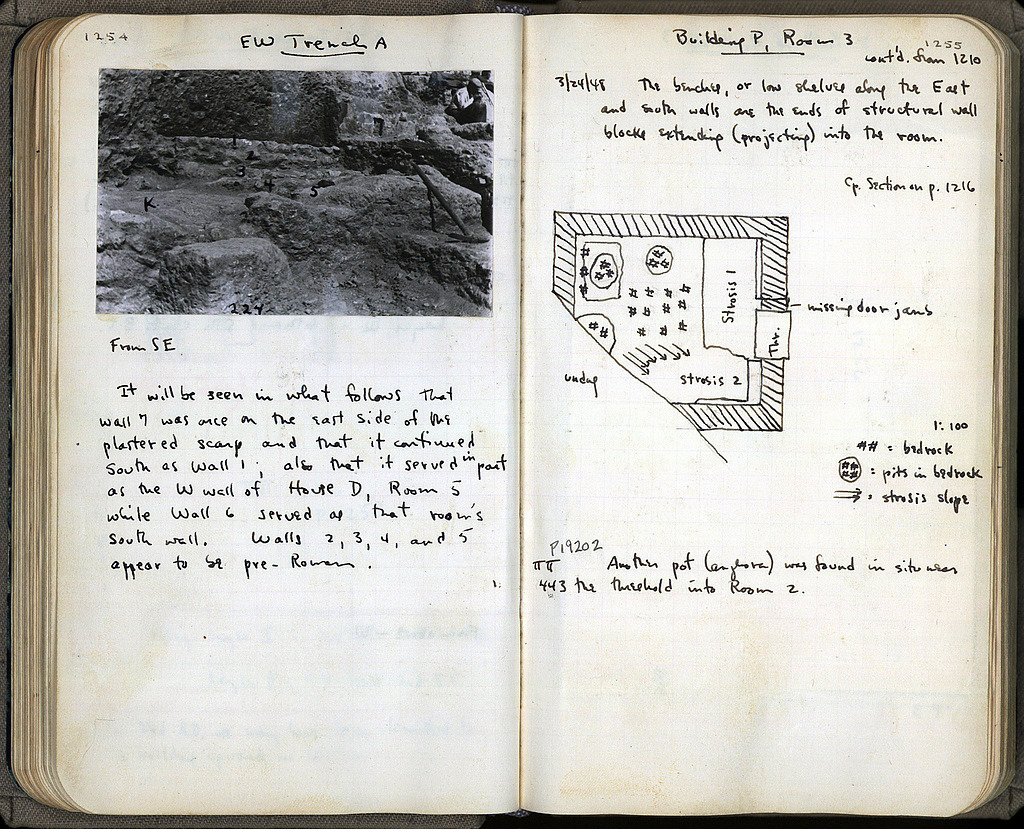 1254
EW Trench A
3
4
5
K
224
From SE
It will be seen in what follows that
wall 7 was once on the east side of the
plastered scarp and that it continued
south as Wall 1; also that it served in part
as the W wall of House D, Room 5
while Wall 6 served as that room's
south wall. Walls 2, 3, 4, and 5
appear to be pre-Roman.
Building P, Room 3
1255
cont'd. from 1210
3/24/48 The benches, or low shelves along the East
and south walls are the ends of structural wall
blocks extending (projecting) into the room.
Cp. Section on p. 1216
Strosis 1
missing door jamb
Thr.
strosis 2
undug
1:100
## = bedrock
= pits in bedrock
= strosis slope
P19202
ΠΠ Another pot (amphora) was found in situ near
443 the threshold into Room 2.